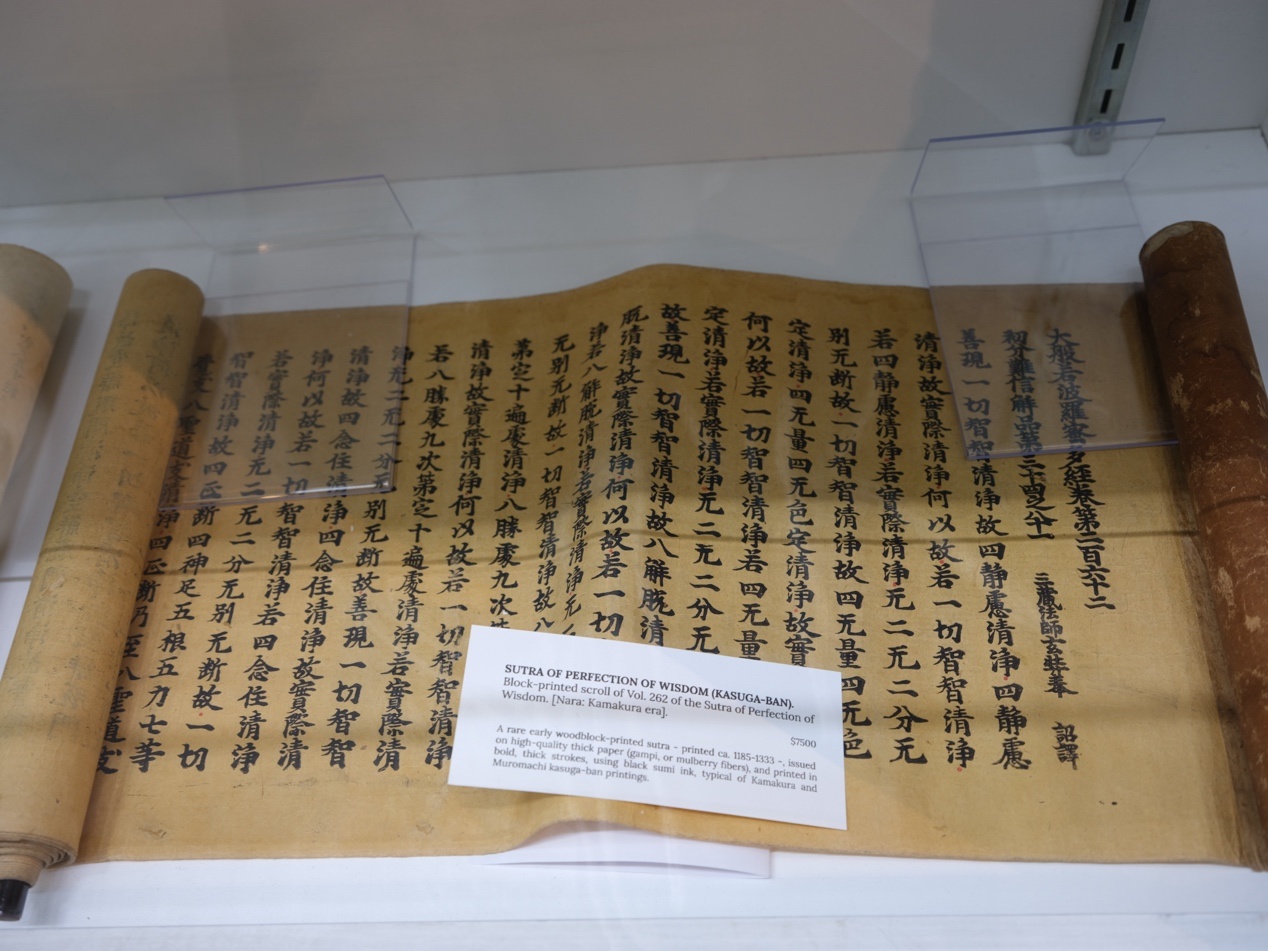 大般若波羅蜜多經卷第二百六十二
初分難信解品第三十四之八十一 三藏法師玄奘奉 詔譯
善現一切智智清淨故四靜慮清淨四靜慮
清淨故實際清淨何以故若一切智智清淨
若四靜慮清淨若實際清淨无二无二分无
别无断故一切智智清淨故四无量四无色
定清淨四无量四无色定清淨故實
何以故若一切智智清淨若四无量
定清淨若實際清淨无二无二分无
故善現一切智智清淨故八解脱清
脱清淨故實際清淨何以故若一切
淨若八解脱清淨若實際清淨无
无别无断故一切智智清淨故八
第定十遍處清淨八勝處九次
清淨故實際清淨何以故若一切智智清淨
若八勝處九次第定十遍處清淨若實際清
淨无二无二分无别无断故善現一切智智
清淨故四念住清淨四念住清淨故實際清
淨何以故若一切智智清淨若四念住清淨
若實際清淨无二无二分无别无断故一切
智智清淨故四正断四神足五根五力七等
覺支八聖道支清淨四正断乃至八聖道支
SUTRA OF PERFECTION OF WISDOM (KASUGA-BAN).
Block-printed scroll of Vol. 262 of the Sutra of Perfection of
Wisdom. [Nara: Kamakura era].
$7500
A rare early woodblock-printed sutra - printed ca. 1185-1333 -, issued
on high-quality thick paper (gampi, or mulberry fibers), and printed in
bold, thick strokes, using black sumi ink, typical of Kamakura and
Muromachi kasuga-ban printings.